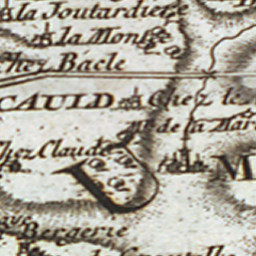 la Joutardiere
la Mon
chez Bacle
CAULD Chez le
M. de la Mar
Chez Claude
U M
Bergerie